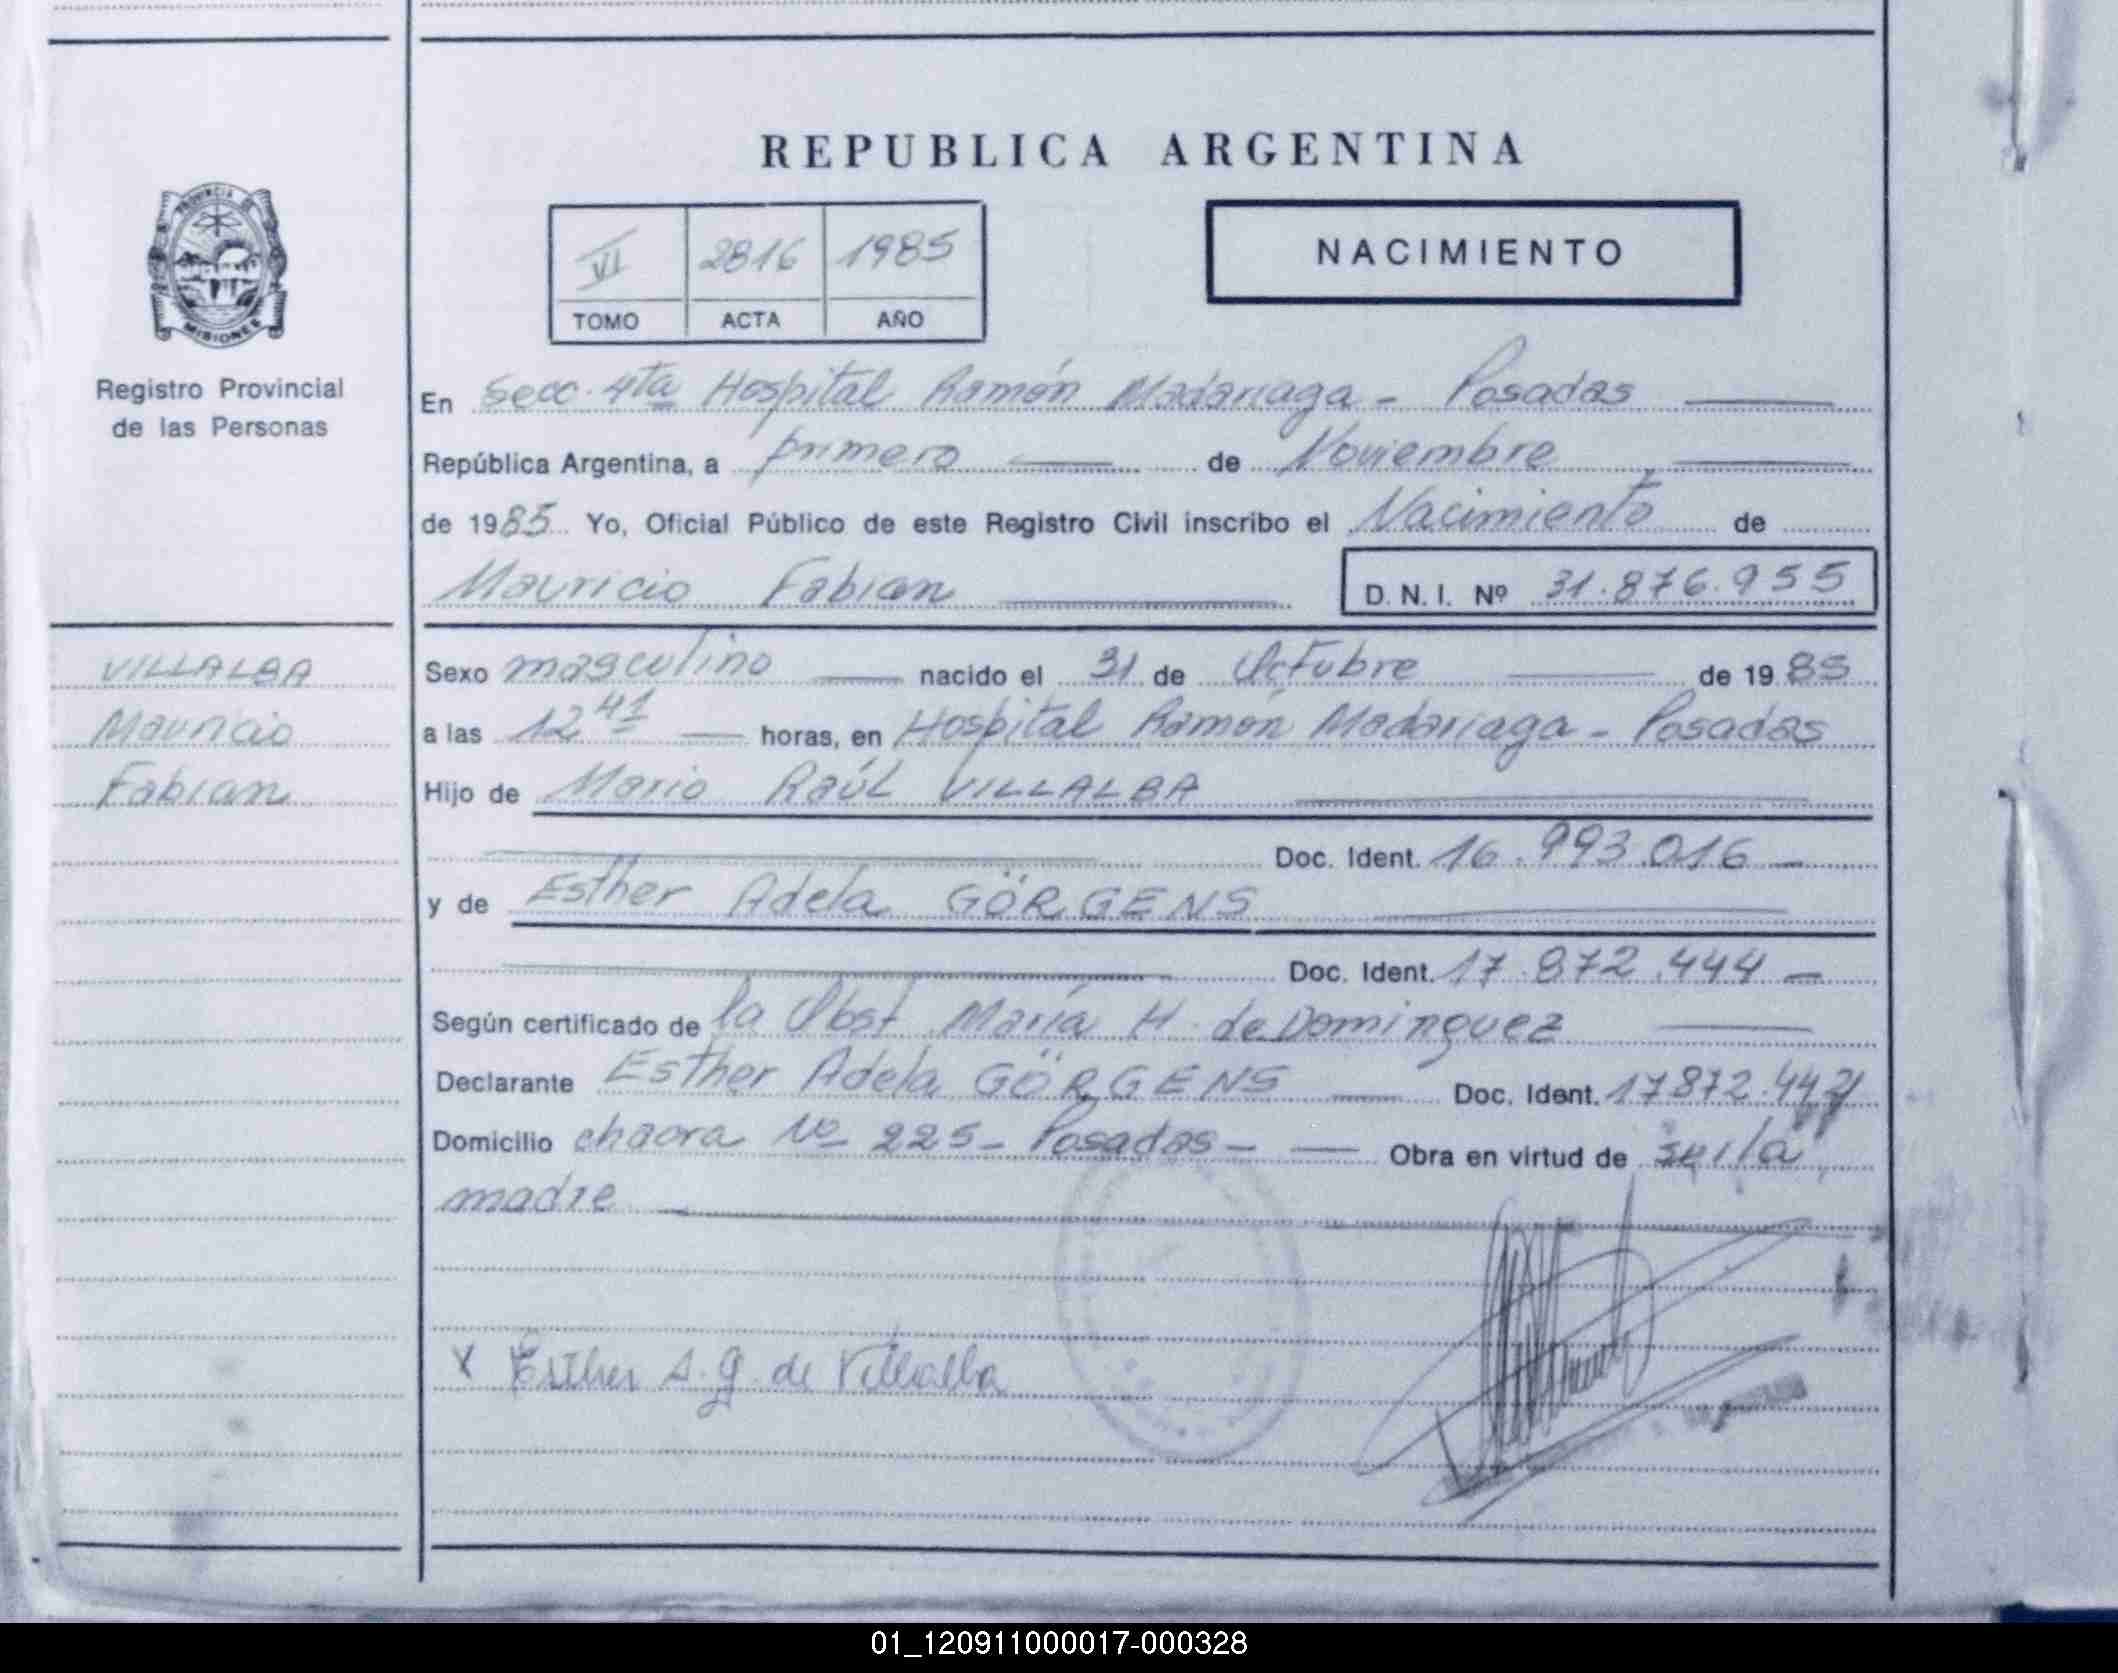 REPUBLICA ARGENTINA
VI 2816 1985
TOMO ACTA AÑO
NACIMIENTO
PROVINCIA DE
MISIONES
Registro Provincial
de las Personas
En Secc. 4ta Hospital Ramón Madariaga - Posadas
República Argentina, a primero de Noviembre
de 1985 Yo, Oficial Público de este Registro Civil inscribo el Nacimiento de
Mauricio Fabian D. N. I. Nº 31.876.955
VILLALBA
Mauricio
Fabian
Sexo masculino nacido el 31 de Octubre de 1985
a las 12 41 horas, en Hospital Ramón Madariaga - Posadas
Hijo de Mario Raúl VILLALBA
Doc. Ident. 16.993.016
y de Esther Adela GÖRGENS
Doc. Ident. 17.872.444
Según certificado de la Obst María H. de Dominguez
Declarante Esther Adela GÖRGENS Doc. Ident. 17872.444
Domicilio chacra Nº 225 - Posadas - Obra en virtud de ser la
madre
X Esther A. G. de Villalba
01_120911000017-000328